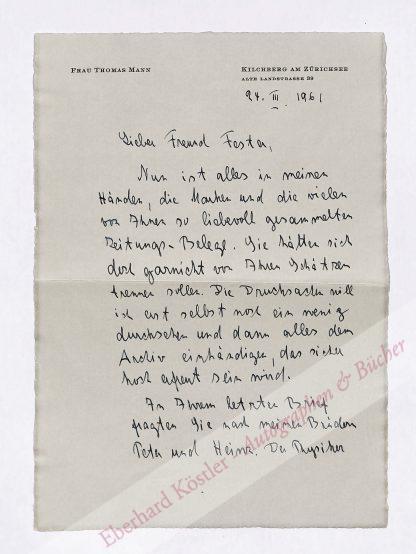 FRAU THOMAS MANN
KILCHBERG AM ZÜRICHSEE
ALTE LANDSTRASSE 39
24. III. 1961
Lieber Freund Fester,
Nun ist alles in meinen
Händen, die Marken und die vielen
von Ihnen so liebevoll gesammelten
Zeitungs-Belege. Sie hätten sich
doch garnicht von Ihren Schätzen
trennen sollen. Die Drucksachen will
ich erst selbst noch ein wenig
durchsehen und dann alles dem
Archiv einhändigen, das sicher
hoch erfreut sein wird.
In Ihrem letzten Brief
fragten Sie nach meinen Brüdern
Peter und Heinz. Der Physiker
Eberhard Köstler - Autographen & Bücher